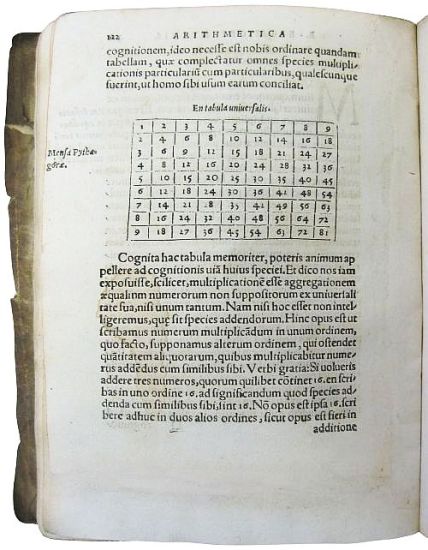 122 ARITHMETICA
cognitionem, ideo necesse est nobis ordinare quandam
tabellam, quæ complectatur omnes species multipli-
cationis particulariũ cum particularibus, qualescunque
fuerint, ut homo sibi usum earum conciliat.
En tabula universalis.
Mensa Pytha-
goræ.
1 2 3 4 5 6 7 8 9
2 4 6 8 10 12 14 16 18
3 6 9 12 15 18 21 24 27
4 8 12 16 20 24 28 32 36
5 10 15 20 25 30 35 40 45
6 12 18 24 30 36 42 48 54
7 14 21 28 35 42 49 56 63
8 16 24 32 40 48 56 64 72
9 18 27 36 45 54 63 72 81
Cognita hac tabula memoriter, poteris animum ap
pellere ad cognitionis uiã huius speciei. Et dico nos iam
exposuisse, scilicet, multiplicationẽ esse aggregationem
æqualium numerorum non suppositorum ex uniuersali
tate sua, nisi unum tantum. Nam nisi hoc esset non intel-
ligeremus, quę sit species addendorum. Hinc opus est ut
scribamus numerum multiplicãdum in unum ordinem,
quo facto, supponamus alterum ordinem, qui ostendet
quãtitatem aliquotarum, quibus multiplicabitur nume-
rus addẽdus cum similibus sibi. Verbi gratia: Si uolueris
addere tres numeros, quorum quilibet cõtinet 16. en scri
bas in uno ordine 16. ad significandum quod species ad-
denda cum similibus sibi, sint 16. Nõ opus est ipsa 16. scri
bere adhuc in duos alios ordines, sicut opus est fieri in
additione